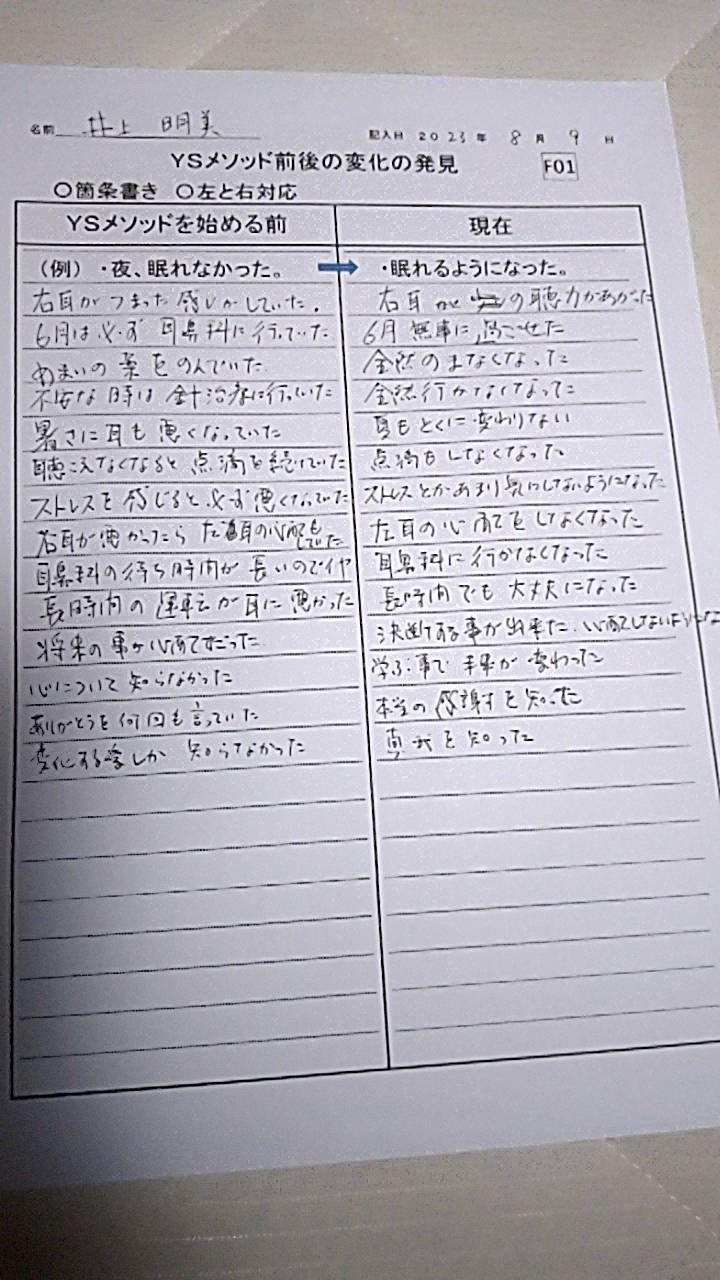 名前 井上 明美
記入日 2023年 8月 9日
YSメソッド前後の変化の発見 F01
○箇条書き ○左と右対応
YSメソッドを始める前 現在
(例) ・夜、眠れなかった。 ・眠れるようになった。
右耳がつまった感じがしていた。 右耳の聴力があがった
6月は必ず耳鼻科に行っていた 6月無事に過ごせた
めまいの薬をのんでいた 全然のまなくなった
不安な時は針治療に行っていた 全然行かなくなった
暑さに耳も悪くなっていた 耳もとくに変わりない
聴こえなくなると点滴を続けていた 点滴もしなくなった
ストレスを感じると必ず悪くなっていた ストレスとかあまり気にしないようになった
右耳が悪かったら左耳の心配もしていた 左耳の心配をしなくなった
耳鼻科の待ち時間が長いのでイヤ 耳鼻科に行かなくなった
長時間の運転が耳に悪かった 長時間でも大丈夫になった
将来の事が心配でだった 決断する事が出来た、心配しないように
心について知らなかった 学ぶ事で 変わった
ありがとうを何回も言っていた 本当の感謝を知った
変化する学しか知らなかった 真我を知った